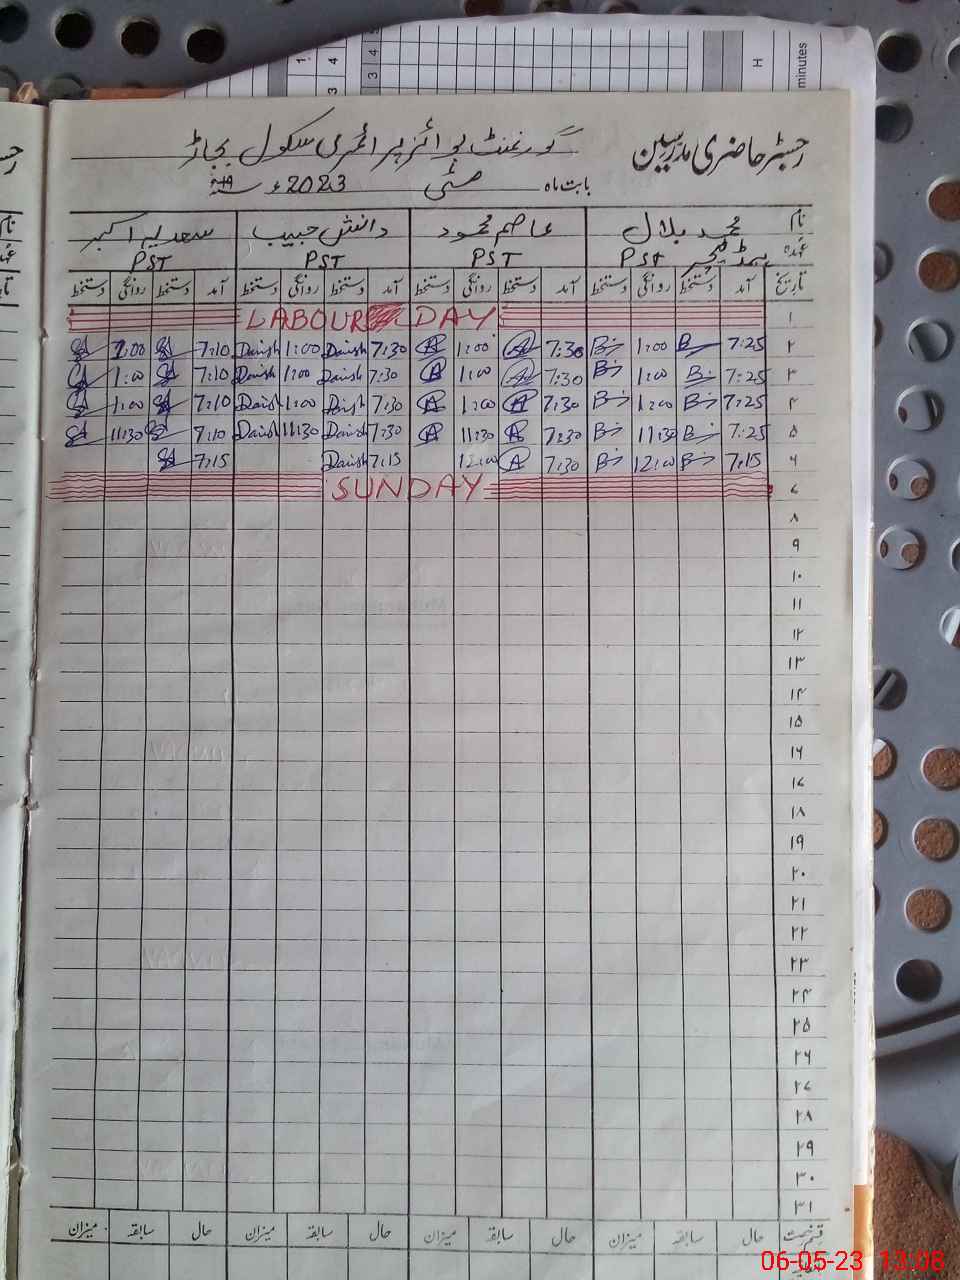 رجسٹر حاضری مدرسین
گورنمنٹ بوائز پرائمری سکول بجاڑ
بابت ماہ مئی 2023ء
نام محمد بلال عاصم محمود دانش حبیب سعدیہ اکبر
عہدہ ہیڈ ٹیچر PST PST PST PST
تاریخ آمد دستخط روانگی دستخط آمد دستخط روانگی دستخط آمد دستخط روانگی دستخط آمد دستخط روانگی دستخط
۱ LABOUR DAY
۲ 7:25 1:00 7:30 1:00 7:30 Danish 1:00 Danish 7:10 1:00
۳ 7:25 1:00 7:30 1:00 7:30 Danish 1:00 Danish 7:10 1:00
۴ 7:25 1:00 7:30 1:00 7:30 Danish 1:00 Danish 7:10 1:00
۵ 7:25 11:30 7:30 11:30 7:30 Danish 11:30 Danish 7:10 11:30
۶ 7:15 12:00 7:30 12:00 7:15 Danish 7:15
۷ SUNDAY
۸
۹
۱۰
۱۱
۱۲
۱۳
۱۴
۱۵
۱۶
۱۷
۱۸
۱۹
۲۰
۲۱
۲۲
۲۳
۲۴
۲۵
۲۶
۲۷
۲۸
۲۹
۳۰
۳۱
قسم رخصت حال سابقہ میزان حال سابقہ میزان حال سابقہ میزان حال سابقہ میزان
H
minutes
06-05-23 13:08